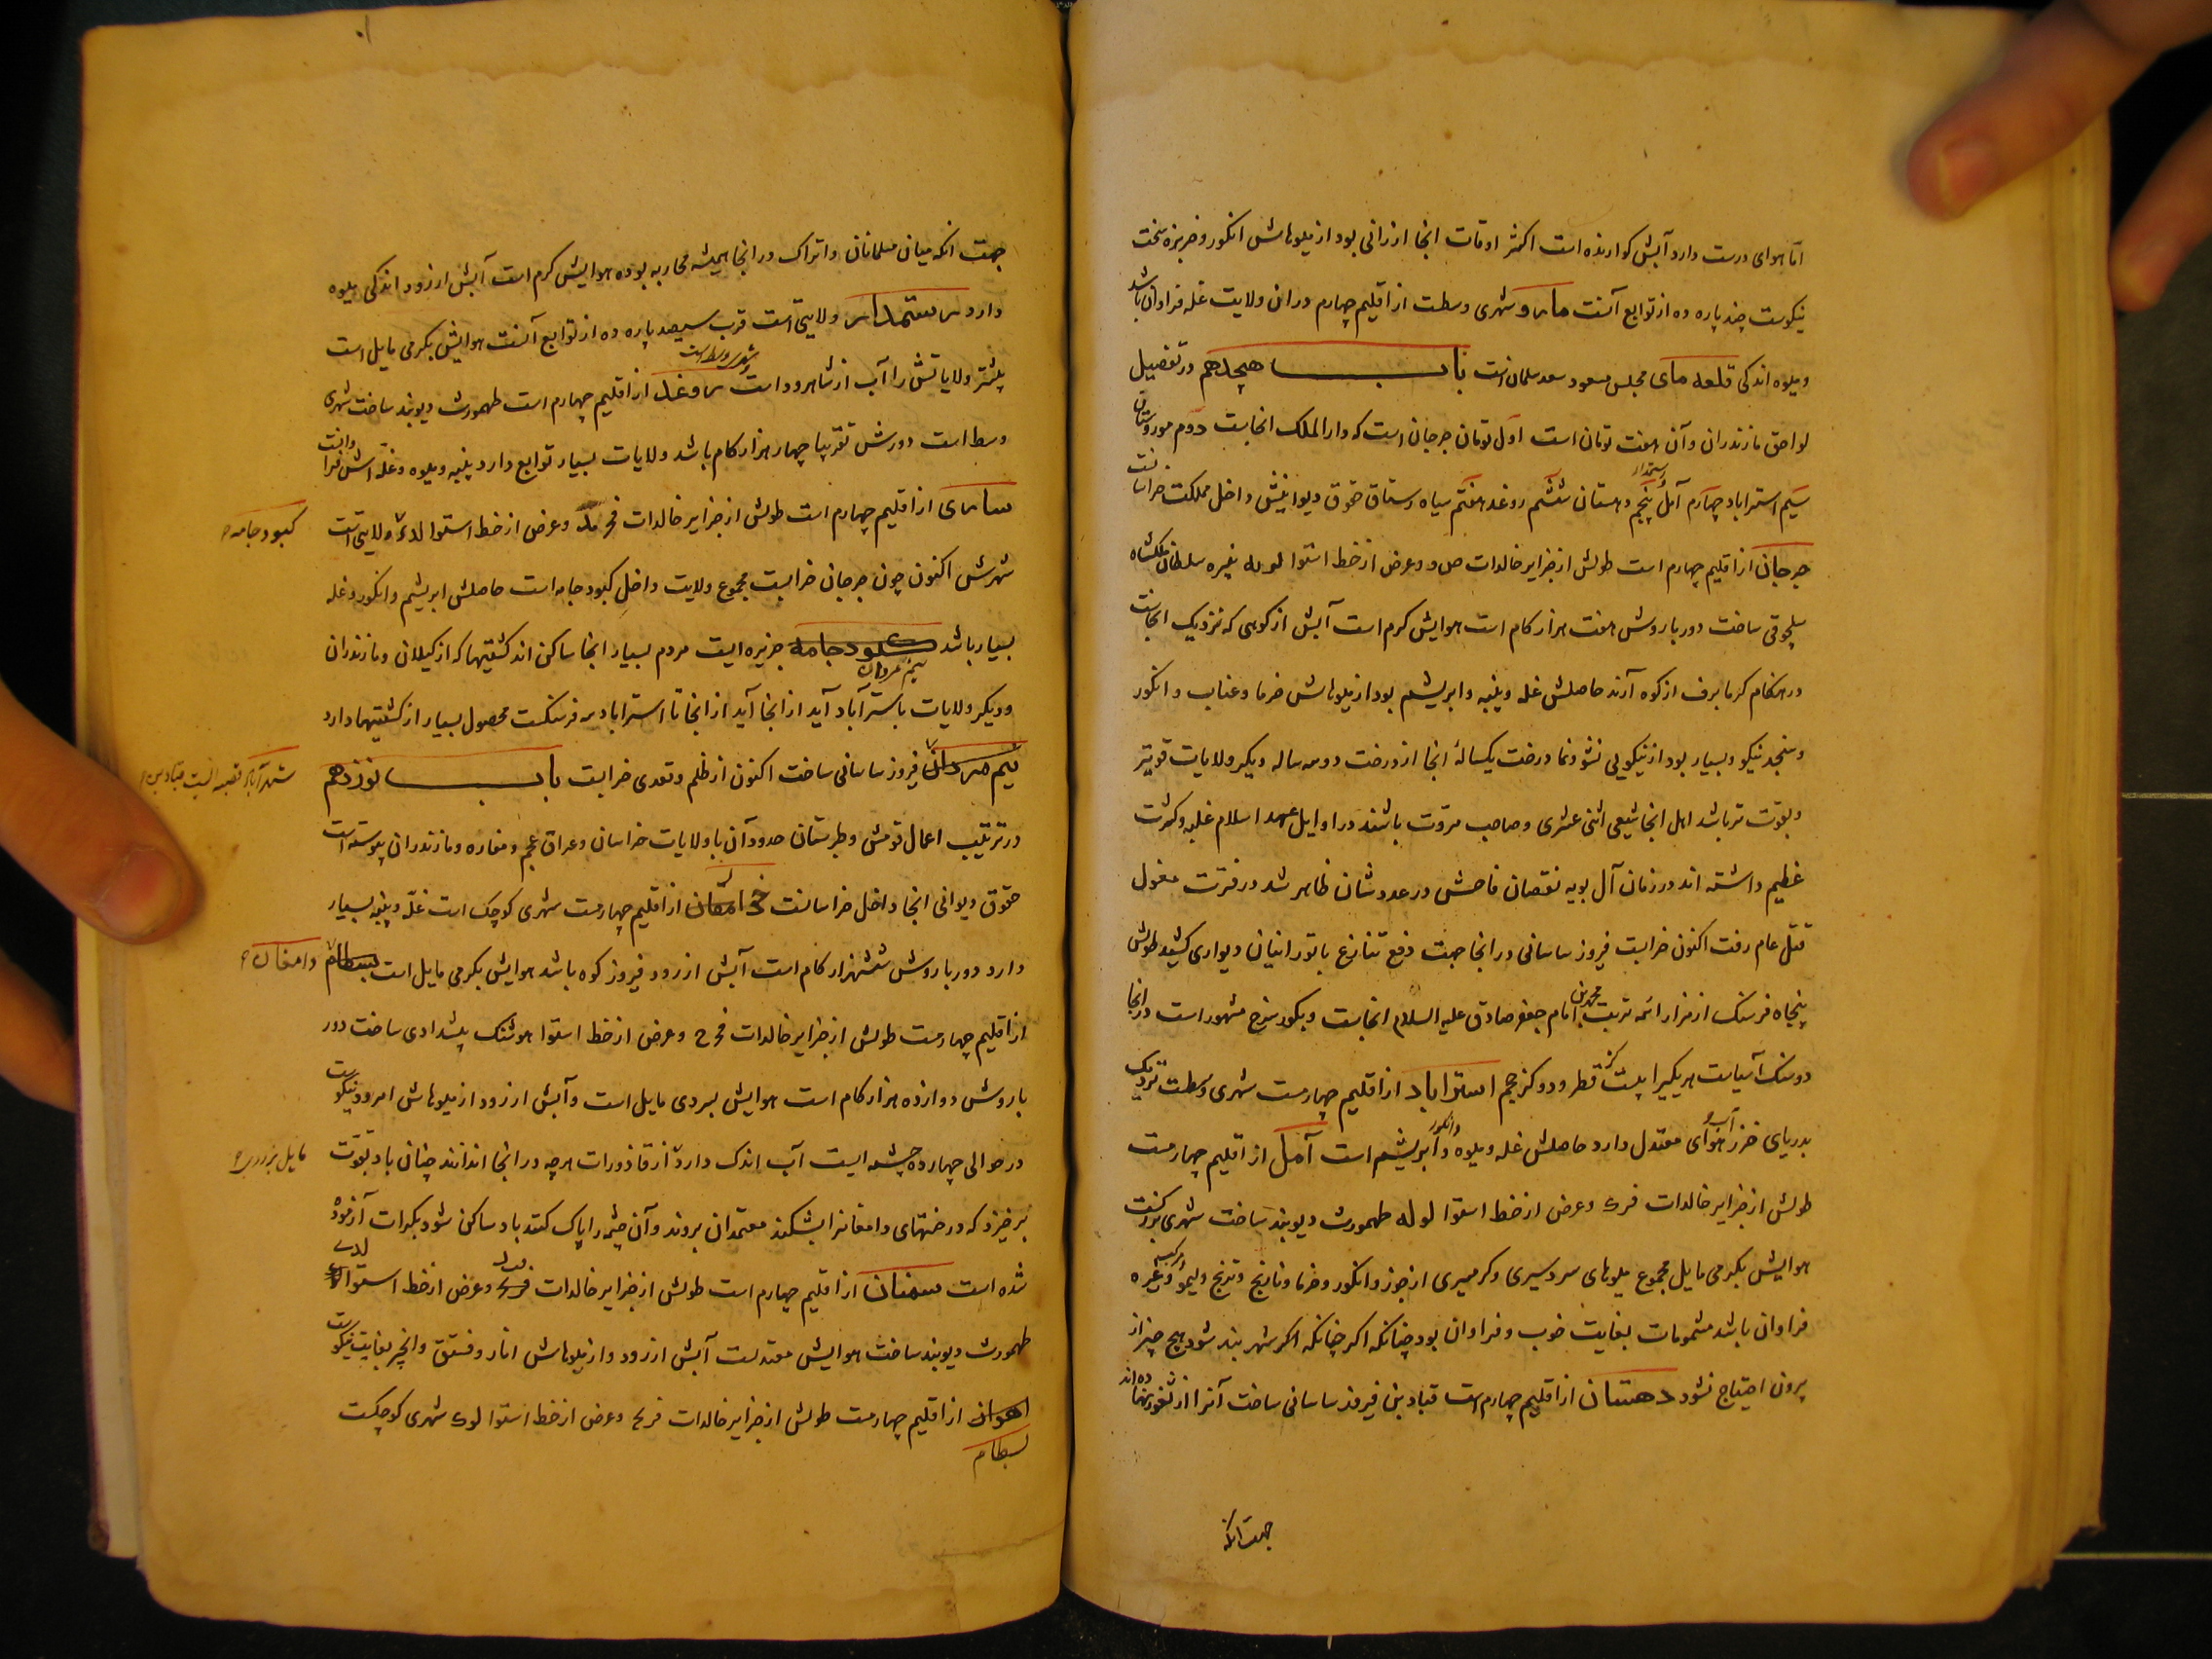 اما هوای درست دارد آبش کوارنده است اکثر اوقات انجا ارزانی بود از میوهاش انکور و خربزه سخت
نیکوست چند پاره ده از توابع آنست مارو شهری وسطت از اقلیم چهارم دران ولایت غله فراوان باشد
و میوه اندکی قلعه مای مجلس مسعود سعد سلمانست باب هیجدهم در تفصیل
لواحق مازندران وآن هفت تومان است اول تومان جرجان است که دارالملک انجاست دوم مورستاق
سیم استراباد چهارم آمل و رستمدار پنجم دهستان ششم روغد هفتم سیاه رستاق حقوق دیوانیش داخل مملکت خراسانست
جرجان از اقلیم چهارم است طولش از جزایر خالدات ص و عرض از خط استوا لو نه نبیره سلطان ملکشاه
سلجوقی ساخت دور باروش هفت هزار کام است هوایش کرم است آبش از کوهی که نزدیک انجاست
در هنکام کرما برف از کوه آرند حاصلش غله و پنبه و ابریشم بود از میوهاش خرما و عناب و انکور
و سنجد نیکو و بسیار بود از نیکویی نشو و نما درخت یکسالهٔ انجا از درخت دو سه ساله دیکر ولایات قویتر
و بقوت تر باشد اهل انجا شیعی اثنی عشری و صاحب مروت باشند در اوایل عهد اسلام غلبه و کثرت
عظیم داشته اند در زمان آل بویه نقصان فاحش در عددشان ظاهر شد در فترت مغول
قتل عام رفت اکنون خرابست فیروز ساسانی در انجا جهت دفع تنازع با تورانیان دیواری کشید طولش
پنجاه فرسنک از مزار ائمه تربت محمد بن امام جعفر صادق علیه السلام انجاست و بکور سرخ مشهور است در انجا
دو سنک آسیاست هر یکی را بیست کز قطر و دو کز حجم استراباد از اقلیم چهارمست شهری وسطت نزدیک
بدریای خزر آب و هوای معتدل دارد حاصلش غله و میوه و انکور و ابریشم است آمل از اقلیم چهارمست
طولش از جزایر خالدات فرک و عرض از خط استوا لو له طهمورث دیوبند ساخت شهری بزرکست
هوایش بکرمی مایل مجموع میوهای سردسیری و کرمسیری از جوز و انکور و خرما و نارنج و ترنج و لیمو و مرکبه و غیره
فراوان باشد مشمومات بغایت خوب و فراوان بود چنانکه اکر چنانکه اکر شهر بند شود هیچ چیز از
برون احتیاج نشود دهستان از اقلیم چهارم است قباد بن فیروز ساسانی ساخت آنرا از ثغور نهاده اند
جهت انکه
جهت انکه میان مسلمانان و اتراک در انجا همیشه محاربه بوده هوایش کرم است آبش از رود اندکی میوه
دارد رستمدار ولایتی است قرب سیصد پاره ده از توابع آنست هوایش بکرمی مایل است
بیشتر ولایاتش را آب از شاهرود است روغد شهری وسط است از اقلیم چهارم است طهمورث دیوبند ساخت شهری
وسط است دورش تقریبا چهار هزار کام باشد ولایات بسیار توابع دارد پنبه و میوه و غله اش فراوانت
ساری از اقلیم چهارم است طولش از جزایر خالدات فح و عرض از خط استوا ولایتی است
کبود جامه
شهرش اکنون چون جرجان خرابست مجموع ولایت داخل کبود جامه است حاصلش ابریشم و انکور و غله
بسیار باشد کبود جامه نیم مردان جزیره ایست مردم بسیار انجا ساکن اند کشتیها که از کیلان و مازندران
و دیکر ولایات باستراباد آید از انجا آید از انجا تا استراباد سه فرسنکست محصول بسیار از کشتیها دارد
نیم مردان فیروز ساسانی ساخت اکنون از ظلم و تعدی خرابست باب نوزدهم
در ترتیب اعمال قومش و طبرستان حدود آن با ولایات خراسان و عراق عجم و مفازه و مازندران پیوسته است
حقوق دیوانی انجا داخل خراسانست خرامقان از اقلیم چهارمست شهری کوچک است غله و پنبه بسیار
دارد دور باروش ششهزار کام است آبش از رود فیروز کوه باشد هوایش بکرمی مایل است بسطام
دامغان
از اقلیم چهارمست طولش از جزایر خالدات فح و عرض از خط استوا هوشنک پیشدادی ساخت دور
باروش دوازده هزار کام است هوایش بسردی مایل است و آبش از رود از میوهاش امرود نیکوست
در حوالی چهارده چشمه ایست آب اندک دارد از قاذورات هرچه در انجا اندازند چنان باد بقوت
برخیزد که درختهای دامغانرا بشکند معتمدان بروند و آن چشمه را پاک کنند باد ساکن شود بکرات آزموده
شده است سمنان از اقلیم چهارم است طولش از جزایر خالدات و عرض از خط استوا
طهمورث دیوبند ساخت هوایش معتدلست آبش از رود و از میوهاش انار و فستق و انجیر بغایت نیکوست
اهوان از اقلیم چهارمست طولش از جزایر خالدات و عرض از خط استوا لوک شهری کوچکست
بسطام